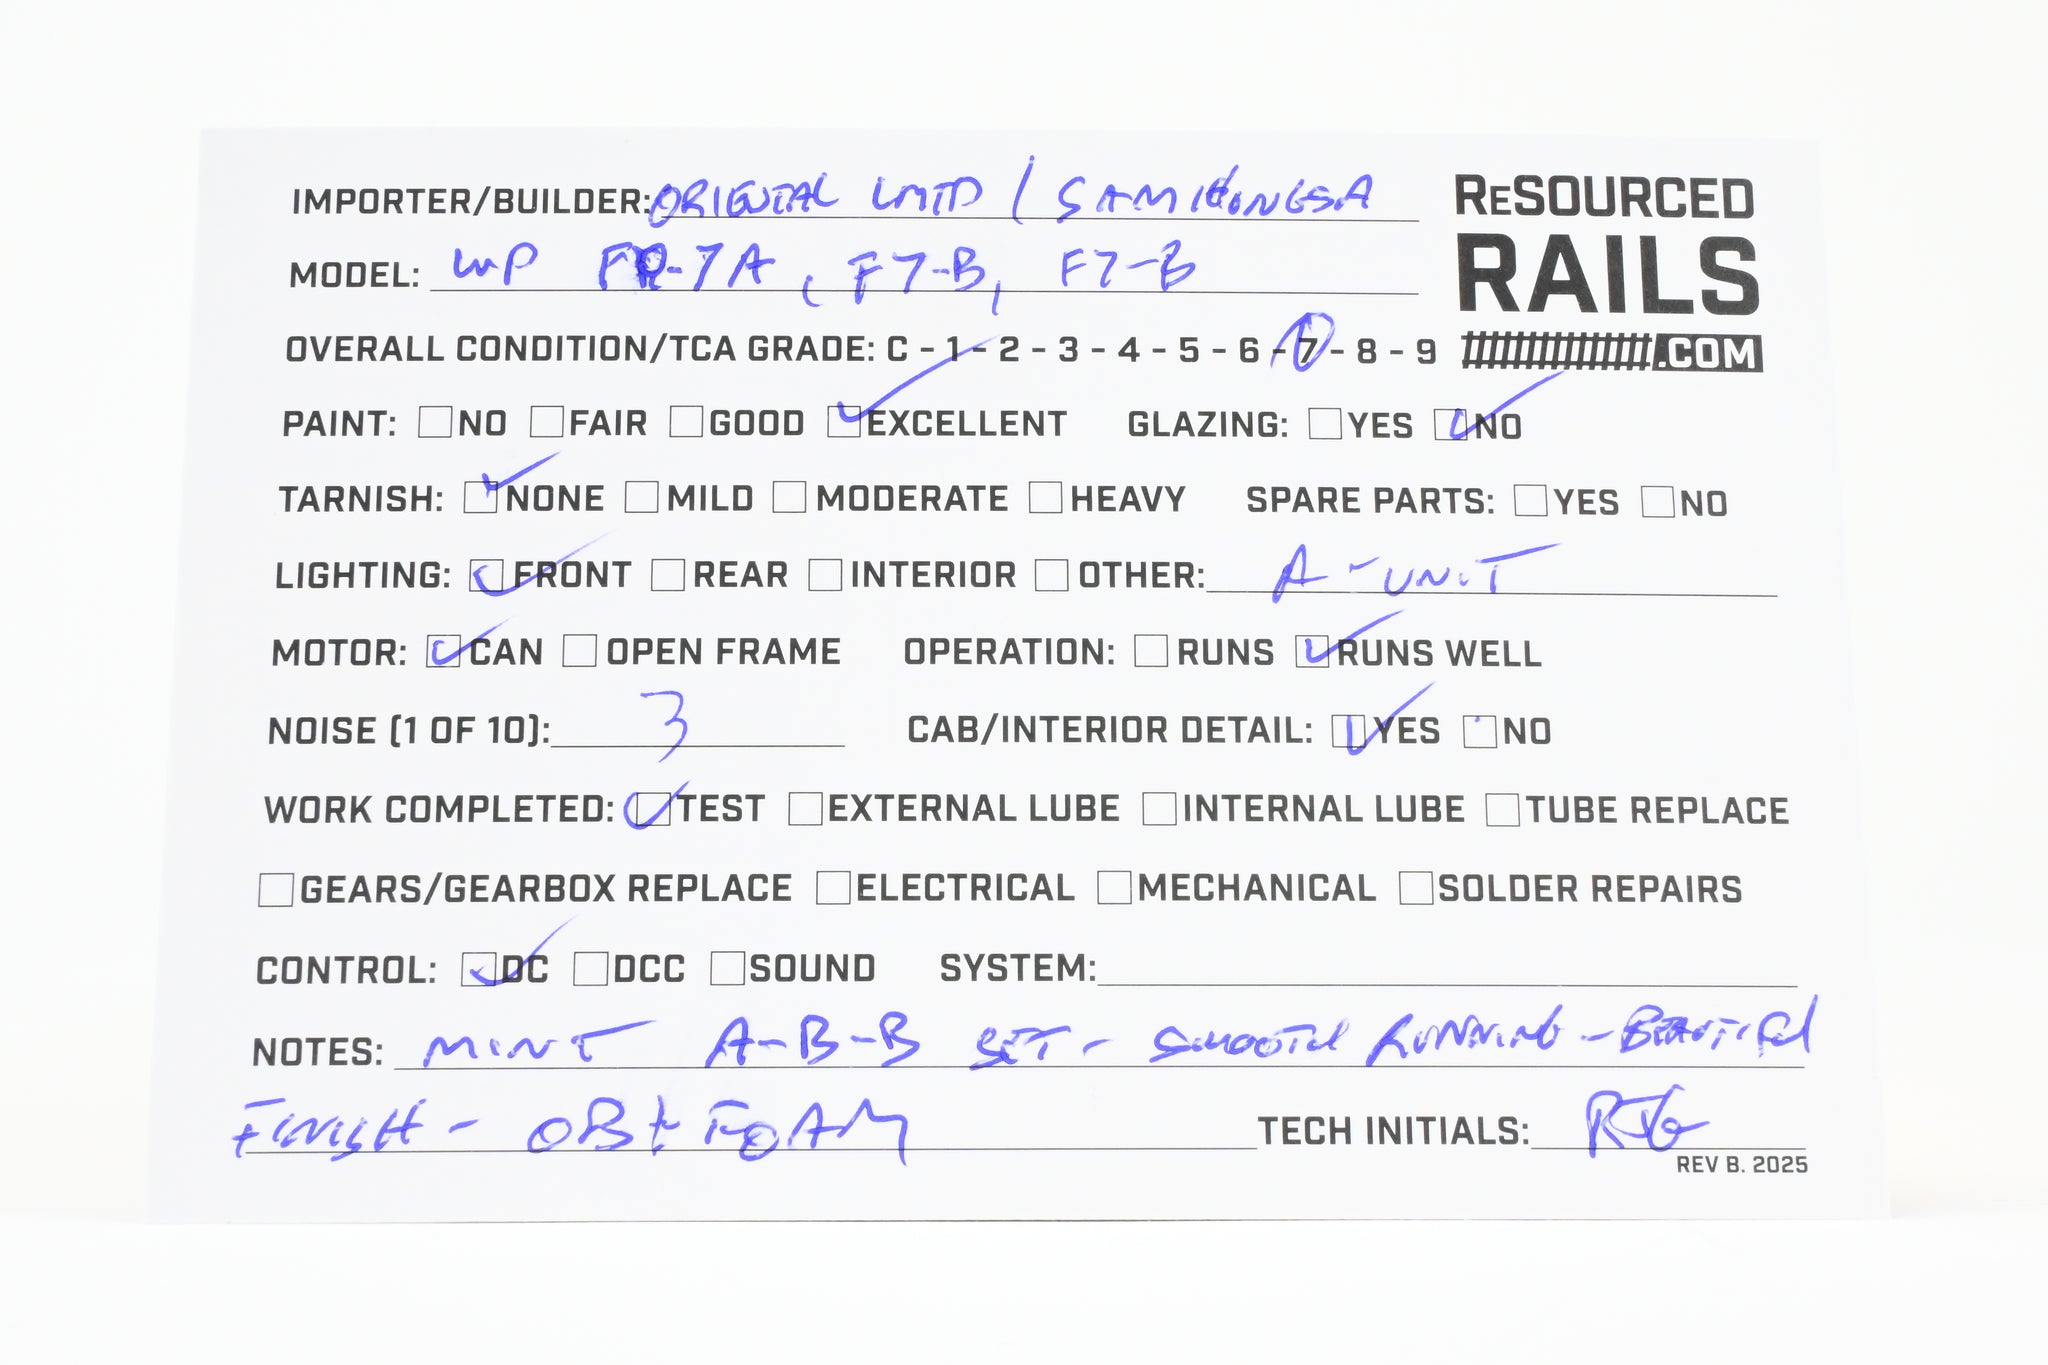 IMPORTER/BUILDER: ORIENTAL LMTD / SAMHONGSA
ReSOURCED
RAILS
.COM
MODEL: WP FP-7A, F7-B, F7-B
OVERALL CONDITION/TCA GRADE: C - 1 - 2 - 3 - 4 - 5 - 6 - 7 - 8 - 9
PAINT: ☐NO ☐FAIR ☐GOOD ☑EXCELLENT GLAZING: ☐YES ☑NO
TARNISH: ☑NONE ☐MILD ☐MODERATE ☐HEAVY SPARE PARTS: ☐YES ☐NO
LIGHTING: ☑FRONT ☐REAR ☐INTERIOR ☐OTHER: A-UNIT
MOTOR: ☑CAN ☐OPEN FRAME OPERATION: ☐RUNS ☑RUNS WELL
NOISE (1 OF 10): 3 CAB/INTERIOR DETAIL: ☑YES ☐NO
WORK COMPLETED: ☑TEST ☐EXTERNAL LUBE ☐INTERNAL LUBE ☐TUBE REPLACE
☐GEARS/GEARBOX REPLACE ☐ELECTRICAL ☐MECHANICAL ☐SOLDER REPAIRS
CONTROL: ☑DC ☐DCC ☐SOUND SYSTEM:
NOTES: MINT A-B-B SET - SMOOTH RUNNING - BEAUTIFUL
FINISH - OB + FOAM TECH INITIALS: RJG
REV B. 2025